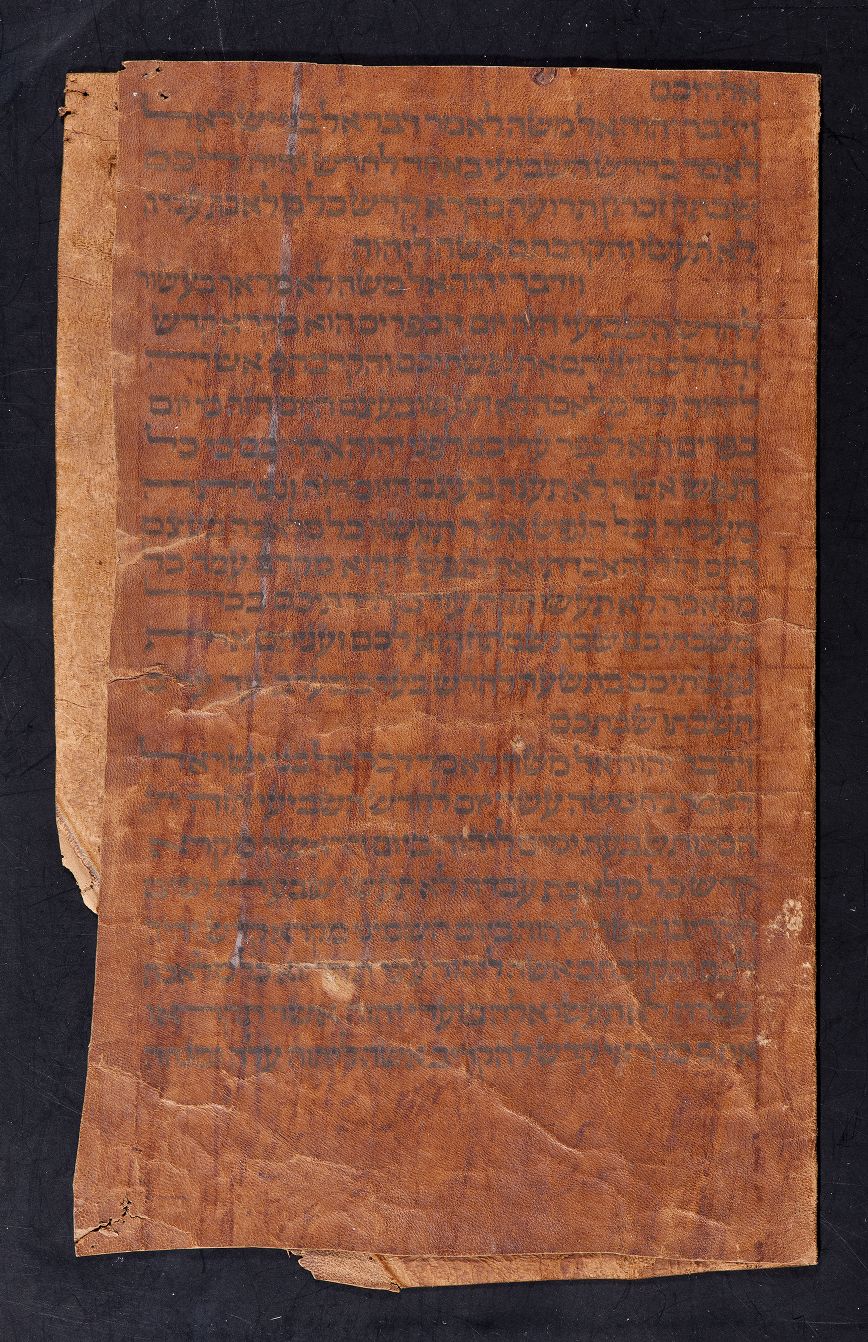 אלהיכם
וידבר יהוה אל משה לאמר דבר אל בני ישראל
לאמר בחדש השביעי באחד לחדש יהיה לכם
שבתון זכרון תרועה מקרא קדש כל מלאכת עבדה
לא תעשו והקרבתם אשה ליהוה
וידבר יהוה אל משה לאמר אך בעשור
לחדש השביעי הזה יום הכפרים הוא מקרא קדש
יהיה לכם ועניתם את נפשתיכם והקרבתם אשה
ליהוה וכל מלאכה לא תעשו בעצם היום הזה כי יום
כפרים הוא לכפר עליכם לפני יהוה אלהיכם כי כל
הנפש אשר לא תענה בעצם היום הזה ונכרתה
מעמיה וכל הנפש אשר תעשה כל מלאכה בעצם
היום הזה והאבדתי את הנפש ההוא מקרב עמה כל
מלאכה לא תעשו חקת עולם לדרתיכם בכל
משבתיכם שבת שבתון הוא לכם ועניתם את
נפשתיכם בתשעה לחדש בערב מערב עד ערב
תשבתו שבתכם
וידבר יהוה אל משה לאמר דבר אל בני ישראל
לאמר בחמשה עשר יום לחדש השביעי הזה חג
הסכות שבעת ימים ליהוה ביום הראשון מקרא
קדש כל מלאכת עבדה לא תעשו שבעת ימים
תקריבו אשה ליהוה ביום השמיני מקרא קדש יהיה
לכם והקרבתם אשה ליהוה עצרת הוא כל מלאכת
עבדה לא תעשו אלה מועדי יהוה אשר תקראו
אתם מקראי קדש להקריב אשה ליהוה עלה ומנחה